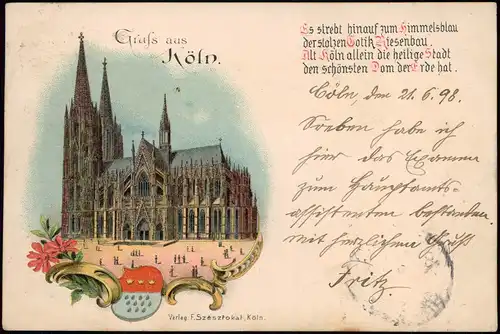 Gruss aus
Köln.
Es strebt hinauf zum Himmelsblau
der stolzen Gotik Riesenbau.
Alt Köln allein die heilige Stadt
den schönsten Dom der Erde hat.
Cöln, den 21.6.98.
Soeben habe ich
hier das Examen
zum Hauptamts-
assistenten bestanden.
mit herzlichem Gruß
Fritz
Verlag F. Szesztokat, Köln.